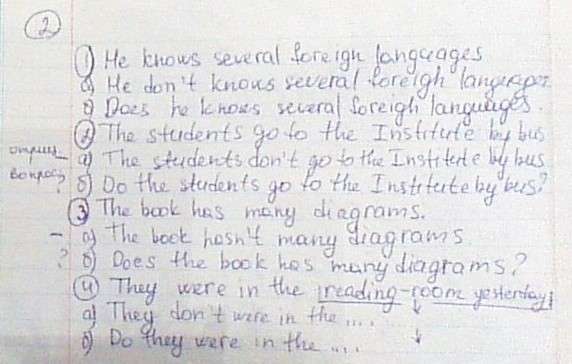 2
1) He knows several foreign languages
a) He don't knows several foreigh languages
б) Does he knows several foreigh languages.
2) The students go to the Institute by bus
a) The students don't go to the Institute by bus
вопрос ? б) Do the students go to the Institute by bus?
3) The book has many diagrams.
- a) The book hasn't many diagrams
? б) Does the book has many diagrams?
4) They were in the reading-room yesterday
a) They don't were in the ....
б) Do they were in the ....